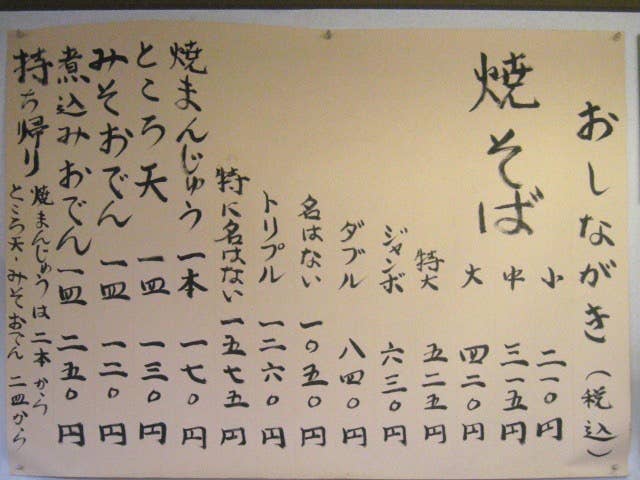 おしながき（税込）
焼そば
小 二一〇円
中 三一五円
大 四二〇円
特大 五二五円
ジャンボ 六三〇円
ダブル 八四〇円
名はない 一〇五〇円
トリプル 一二六〇円
特に名はない 一五七五円
焼まんじゅう 一本 一七〇円
ところ天 一皿 一三〇円
みそおでん 一皿 一二〇円
煮込みおでん 一皿 二五〇円
持ち帰り 焼まんじゅうは二本から
ところ天・みそおでん 二皿から